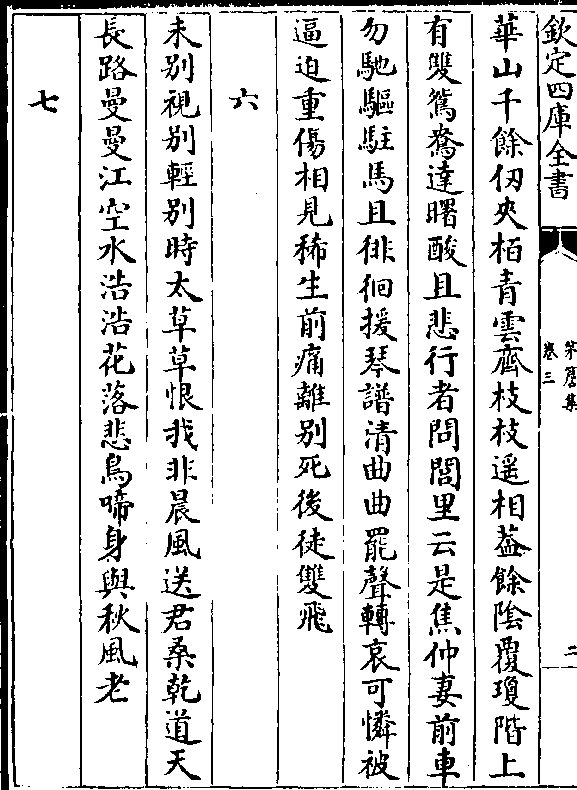 欽定四庫全書
卷三
二
華山千餘仞夾栢青雲齊枝枝遥相葢餘陰覆瓊階上
有雙鴛鴦達曙酸且悲行者問閭里云是焦仲妻前車
勿馳驅駐馬且徘徊援琴譜清曲曲罷聲轉哀可憐被
逼迫重傷相見稀生前痛離别死後徒雙飛
六
未别視别輕别時太草草恨我非晨風送君桑乾道天
長路曼曼江空水浩浩花落悲鳥啼身與秋風老
七